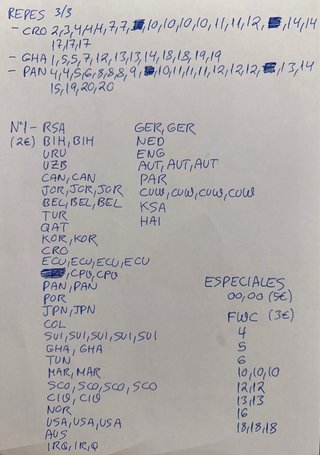 REPES 3/3
- CRO 2,3,4,4,4,7,7,10,10,10,10,11,11,12,14,14
17,17,17
- GHA 1,5,5,7,12,13,13,14,18,18,19,19
- PAN 4,4,5,6,8,8,8,9,10,11,11,11,12,12,12,13,14
15,19,20,20
Nº1 - RSA
(2€) BIH, BIH
URU
UZB
CAN, CAN
JOR, JOR, JOR
BEL, BEL, BEL
TUR
QAT
KOR, KOR
CRO
ECU, ECU, ECU, ECU
CPV, CPV
PAN, PAN
POR
JPN, JPN
COL
SUI, SUI, SUI, SUI, SUI
GHA, GHA
TUN
MAR, MAR
SCO, SCO, SCO, SCO
CIV, CIV
NOR
USA, USA, USA
AUS
IRQ, IRQ
GER, GER
NED
ENG
AUT, AUT, AUT
PAR
CUW, CUW, CUW, CUW
KSA
HAI
ESPECIALES
00,00 (5€)
FWC (3€)
4
5
6
10,10,10
12,12
13,13
16
18,18,18